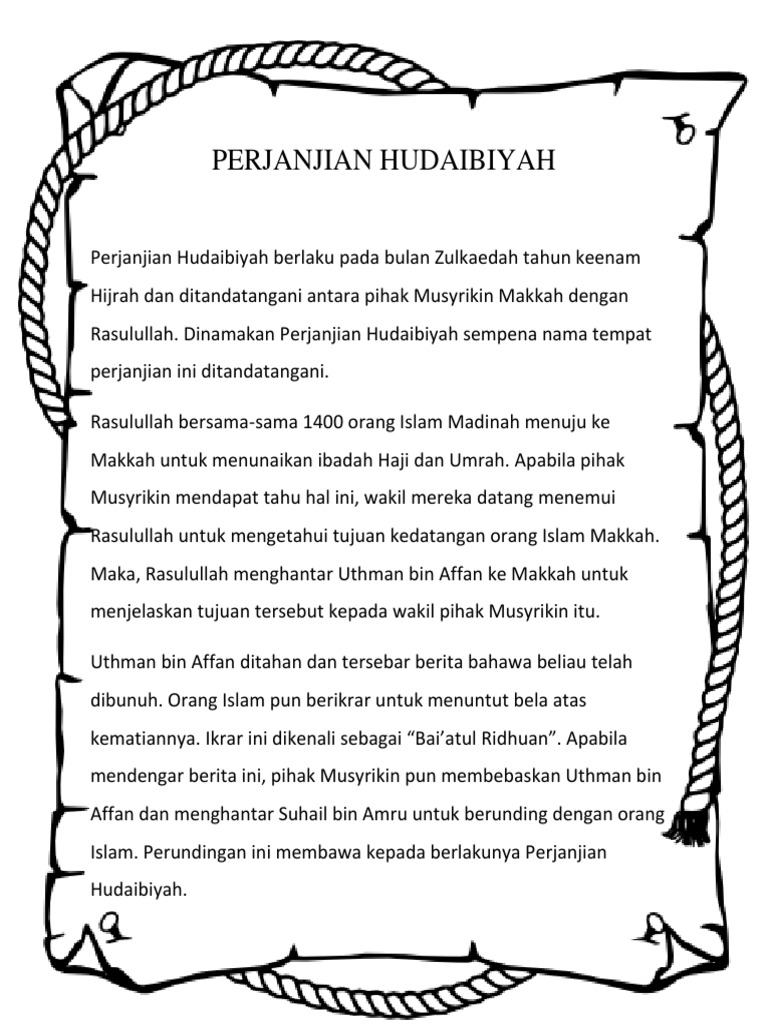 PERJANJIAN HUDAIBIYAH
Perjanjian Hudaibiyah berlaku pada bulan Zulkaedah tahun keenam
Hijrah dan ditandatangani antara pihak Musyrikin Makkah dengan
Rasulullah. Dinamakan Perjanjian Hudaibiyah sempena nama tempat
perjanjian ini ditandatangani.
Rasulullah bersama-sama 1400 orang Islam Madinah menuju ke
Makkah untuk menunaikan ibadah Haji dan Umrah. Apabila pihak
Musyrikin mendapat tahu hal ini, wakil mereka datang menemui
Rasulullah untuk mengetahui tujuan kedatangan orang Islam Makkah.
Maka, Rasulullah menghantar Uthman bin Affan ke Makkah untuk
menjelaskan tujuan tersebut kepada wakil pihak Musyrikin itu.
Uthman bin Affan ditahan dan tersebar berita bahawa beliau telah
dibunuh. Orang Islam pun berikrar untuk menuntut bela atas
kematiannya. Ikrar ini dikenali sebagai “Bai’atul Ridhuan”. Apabila
mendengar berita ini, pihak Musyrikin pun membebaskan Uthman bin
Affan dan menghantar Suhail bin Amru untuk berunding dengan orang
Islam. Perundingan ini membawa kepada berlakunya Perjanjian
Hudaibiyah.